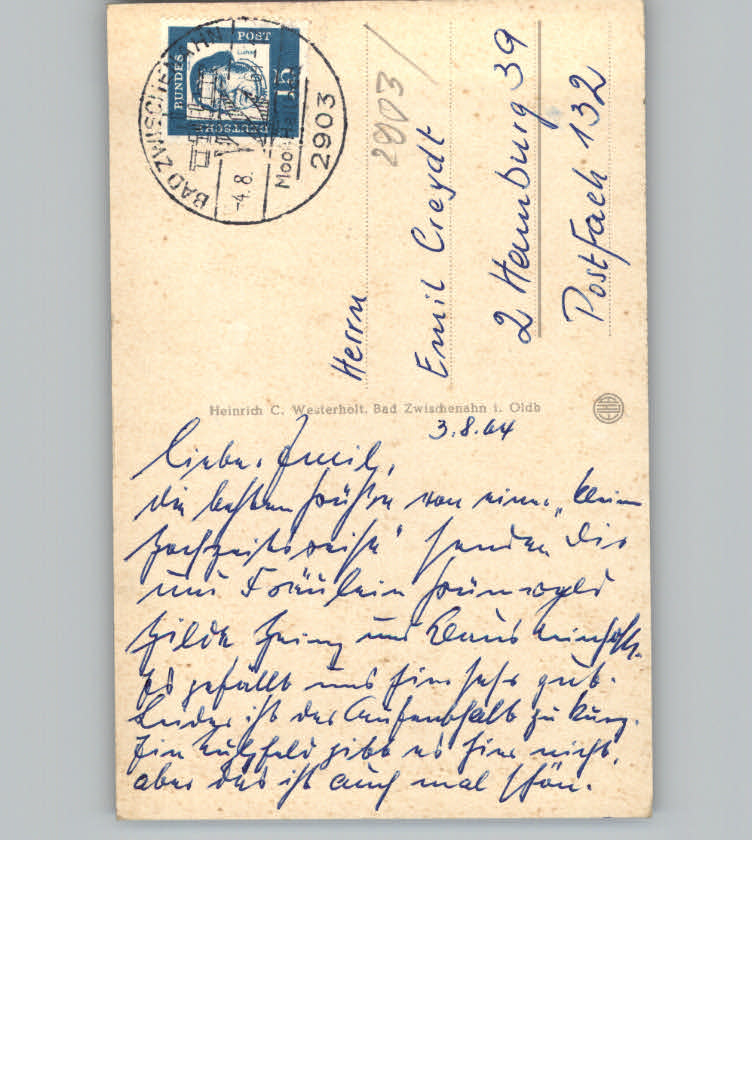 BUNDES
POST
DEUTSCHE
15
BAD ZWISCHENAHN
-4.8.
Moor
2903
2903
Herrn
Emil Creydt
2 Hamburg 39
Postfach 132
Heinrich C. Westerholt, Bad Zwischenahn i. Oldb
3.8.64
Lieber Emil,
die besten Grüße von einer „kleinen
Hochzeitsreise" senden Dir
und Fräulein Grünvogel
Hilde Heinz und Klaus
Es gefällt uns hier sehr gut.
Leider ist der Aufenthalt zu kurz.
Ein gibt es hier nicht,
aber das ist auch mal schön.